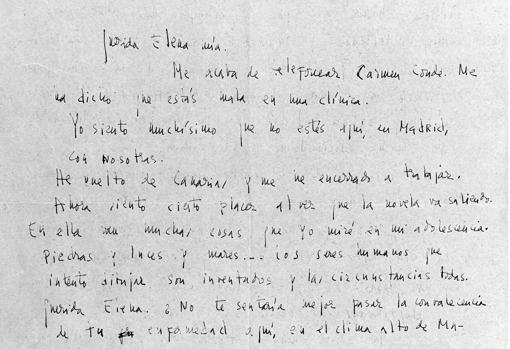 Querida Elena mía.
Me acaba de telefonear Carmen Conde. Me
ha dicho que estás mala en una clínica.
Yo siento muchísimo que no estés aquí, en Madrid,
con nosotras.
He vuelto de Canarias y me he encerrado a trabajar.
Ahora siento cierto placer al ver que la novela va saliendo.
En ella van muchas cosas que yo miré en mi adolescencia.
Piedras y luces y mares... Los seres humanos que
intento dibujar son inventados y las circunstancias todas.
Querida Elena. ¿No te sentaría mejor pasar la convalecencia
de tu enfermedad aquí, en el clima alto de Ma-